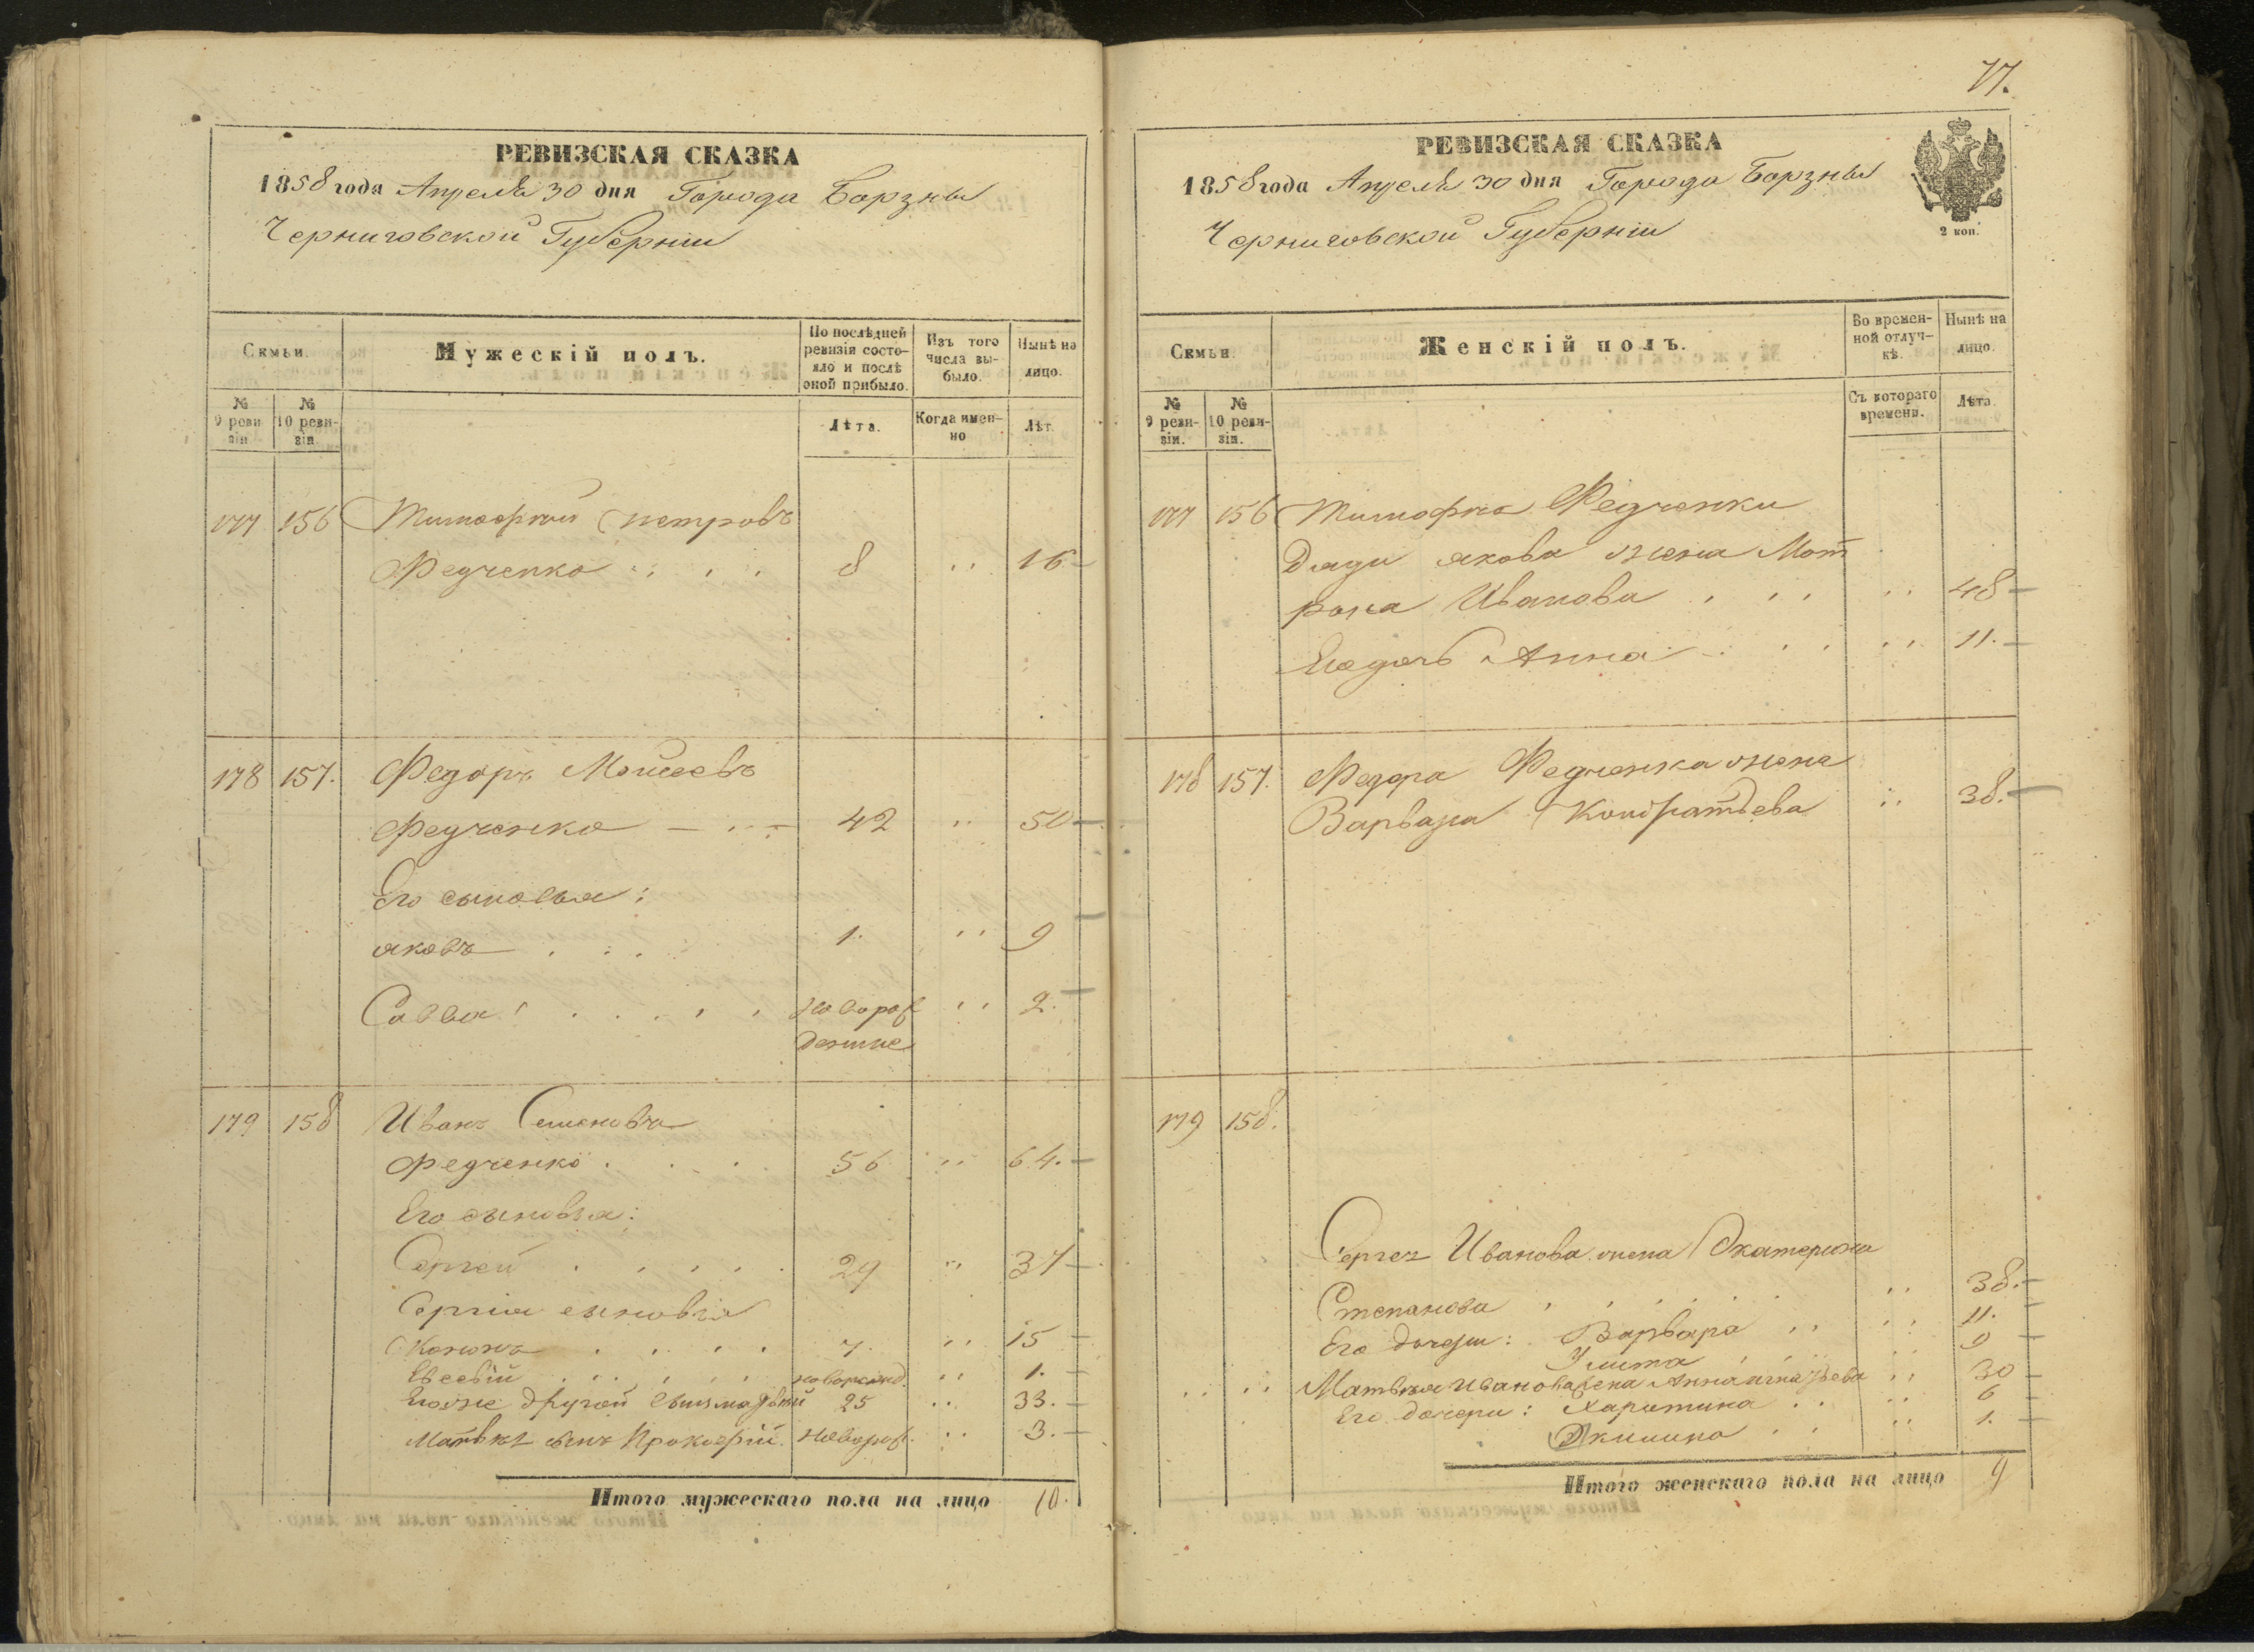 РЕВИЗСКАЯ СКАЗКА
1858 года Апреля 30 дня Города Борзны
Черниговской Губерніи
Семьи.
Мужескій полъ.
По послѣдней ревизіи состояло и послѣ оной прибыло.
Изъ того числа выбыло.
Нынѣ на лицо.
№ 9 ревизіи
№ 10 ревизіи.
Лѣта.
Когда именно
Лѣт.
177 156 Тимофѣй Петровъ
Федченко 8 " 16
178 157. Федоръ Мойсеевъ
Федченко 42 " 50
Его сыновья:
яковъ 1. " 9
Савва новорож " 2.
денние
179 158 Иванъ Семеновъ
Федченко 56 " 64.
Его сыновья:
Сергей 29 " 37
Сергія сыновья
Кононъ 7. " 15
Евсевій новорожд. " 1.
Его же другой сынъ Матвѣй 25 " 33.
Матвѣя сынъ Прокофій. новорож. " 3.
Итого мужескаго пола на лицо 10.
77.
РЕВИЗСКАЯ СКАЗКА
1858 года Апреля 30 дня Города Борзны
Черниговской Губерніи
2 коп.
Семьи.
Женскій полъ.
Во временной отлучкѣ.
Нынѣ на лицо.
№ 9 ревизіи.
№ 10 ревизіи.
Съ котораго времени.
Лѣта.
177 156 Тимофѣя Федченки
Дяди якова жена Мот
рона Иванова " 48
Его дочь Анна " 11.
178 157. Федора Федченка жена
Варвара Кондратьева " 38.
179 158.
Сергея Иванова жена Екатерина
Степанова " 38.
Его дочери: Варвара " 11.
Улита " 9
Матвея Иванова жена Анна " 30
Его дочери: Харитина " 6
Акилина " 1.
Итого женскаго пола на лицо 9